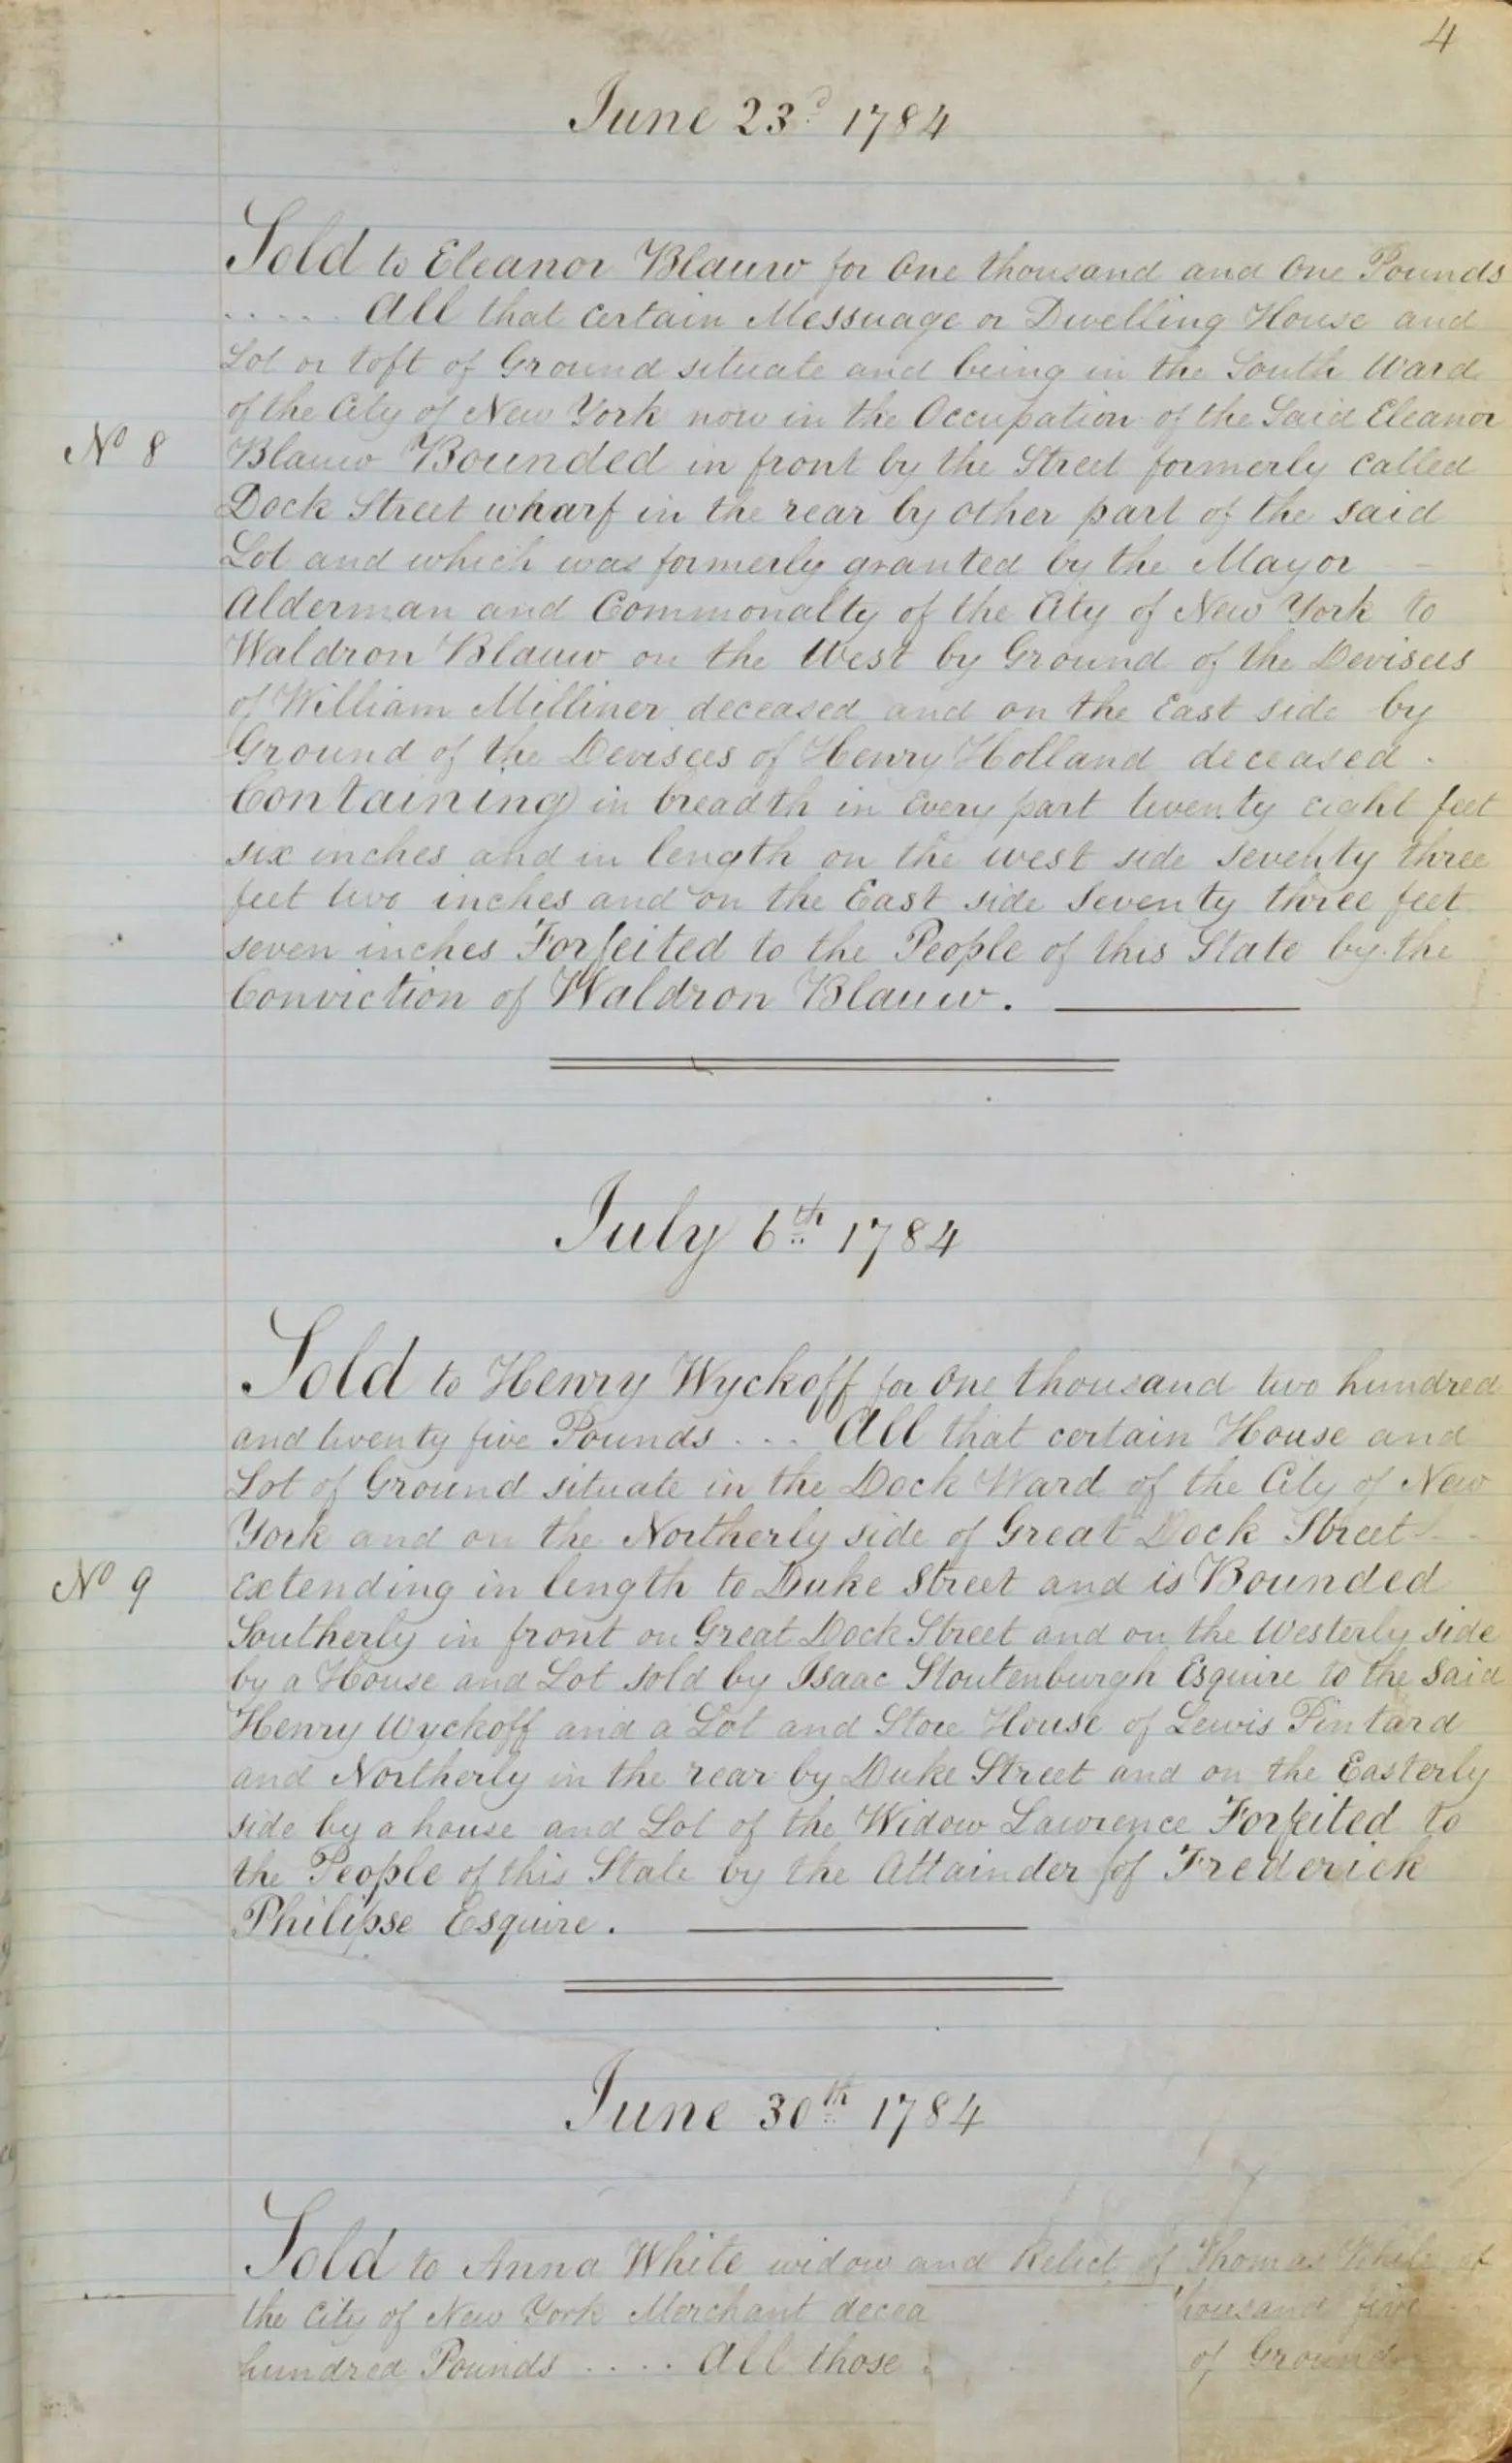 4
June 23d 1784
Sold to Eleanor Blauw for One thousand and One Pounds
..... All that certain Messuage or Dwelling House and
Lot or toft of Ground situate and being in the South Ward
of the City of New York now in the Occupation of the Said Eleanor
No 8
Blauw Bounded in front by the Street formerly called
Dock Street wharf in the rear by other part of the said
Lot and which was formerly granted by the Mayor
Alderman and Commonalty of the City of New York to
Waldron Blauw on the West by Ground of the Devisees
of William Milliner deceased and on the East side by
Ground of the Devisees of Henry Holland deceased.
Containing in breadth in Every part twenty eight feet
six inches and in length on the west side seventy three
feet two inches and on the East side Seventy three feet
seven inches Forfeited to the People of this State by the
Conviction of Waldron Blauw.
July 6th 1784
Sold to Henry Wyckoff for One thousand two hundred
and twenty five Pounds ... All that certain House and
Lot of Ground situate in the Dock Ward of the City of New
York and on the Northerly side of Great Dock Street
No 9
Extending in length to Duke Street and is Bounded
Southerly in front on Great Dock Street and on the Westerly side
by a House and Lot sold by Isaac Stoutenburgh Esquire to the Said
Henry Wyckoff and a Lot and Store House of Lewis Pintard
and Northerly in the rear by Duke Street and on the Easterly
side by a house and Lot of the Widow Lawrence Forfeited to
the People of this State by the Attainder of Frederick
Philipse Esquire.
June 30th 1784
Sold to Anna White widow and Relict of Thomas White of
the City of New York Merchant decea housand five
hundred Pounds ..... All those of Ground